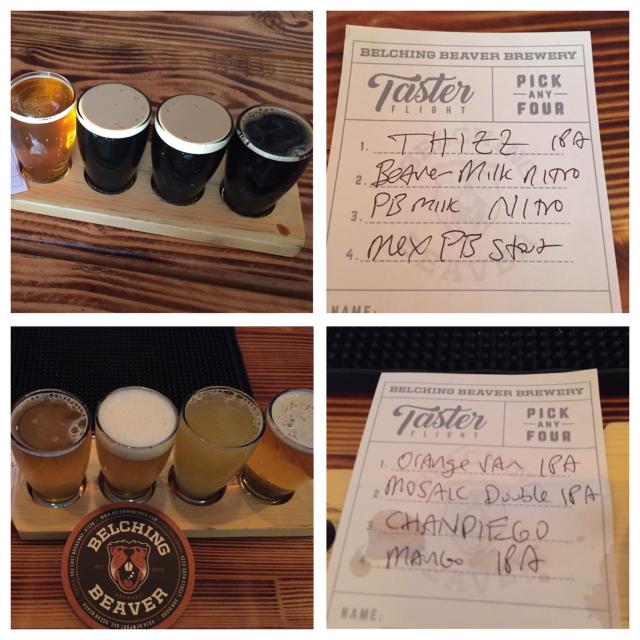 BELCHING BEAVER BREWERY
Taster
FLIGHT
PICK
ANY
FOUR
1. THIZZ IPA
2. Beaver Milk Nitro
3. PB Milk NITRO
4. Mex PB Stout
NAME:
BELCHING
BEAVER
BREWERY
BELCHING BEAVER BREWERY
Taster
FLIGHT
PICK
ANY
FOUR
1. Orange Van IPA
2. MOSAIC Double IPA
3. CHANDIEGO
4. Mango IPA
NAME: